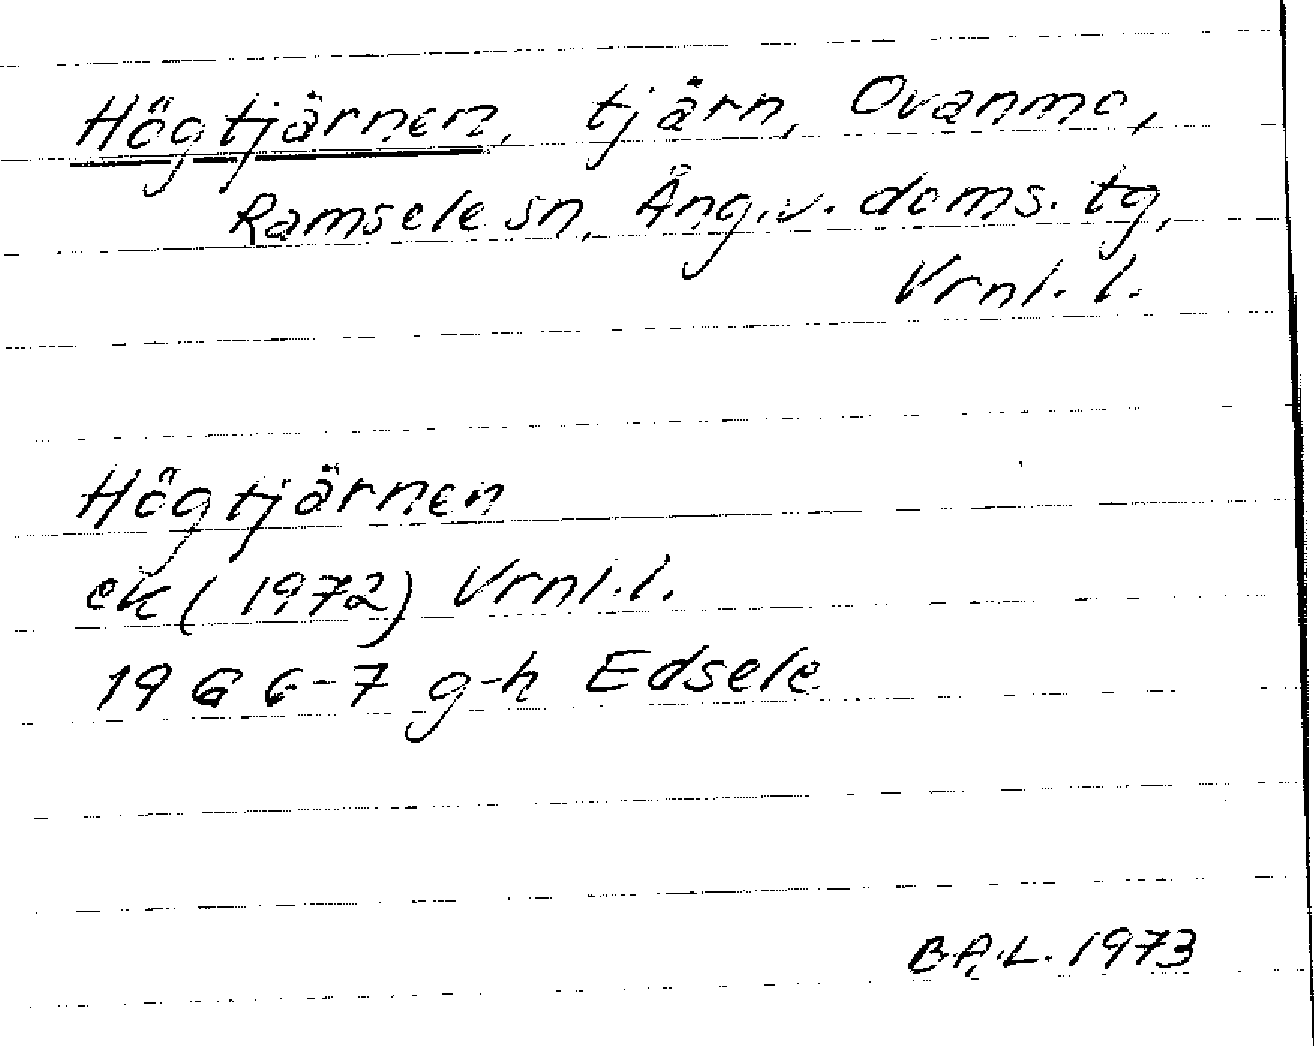 Högtjärnen, tjärn, Ovanmo,
Ramsele sn, Ång.v. doms. tg,
Vrnl. l.
Högtjärnen
ek (1972) Vrnl. l.
1966-7 g-h Edsele
B.A.L. 1973